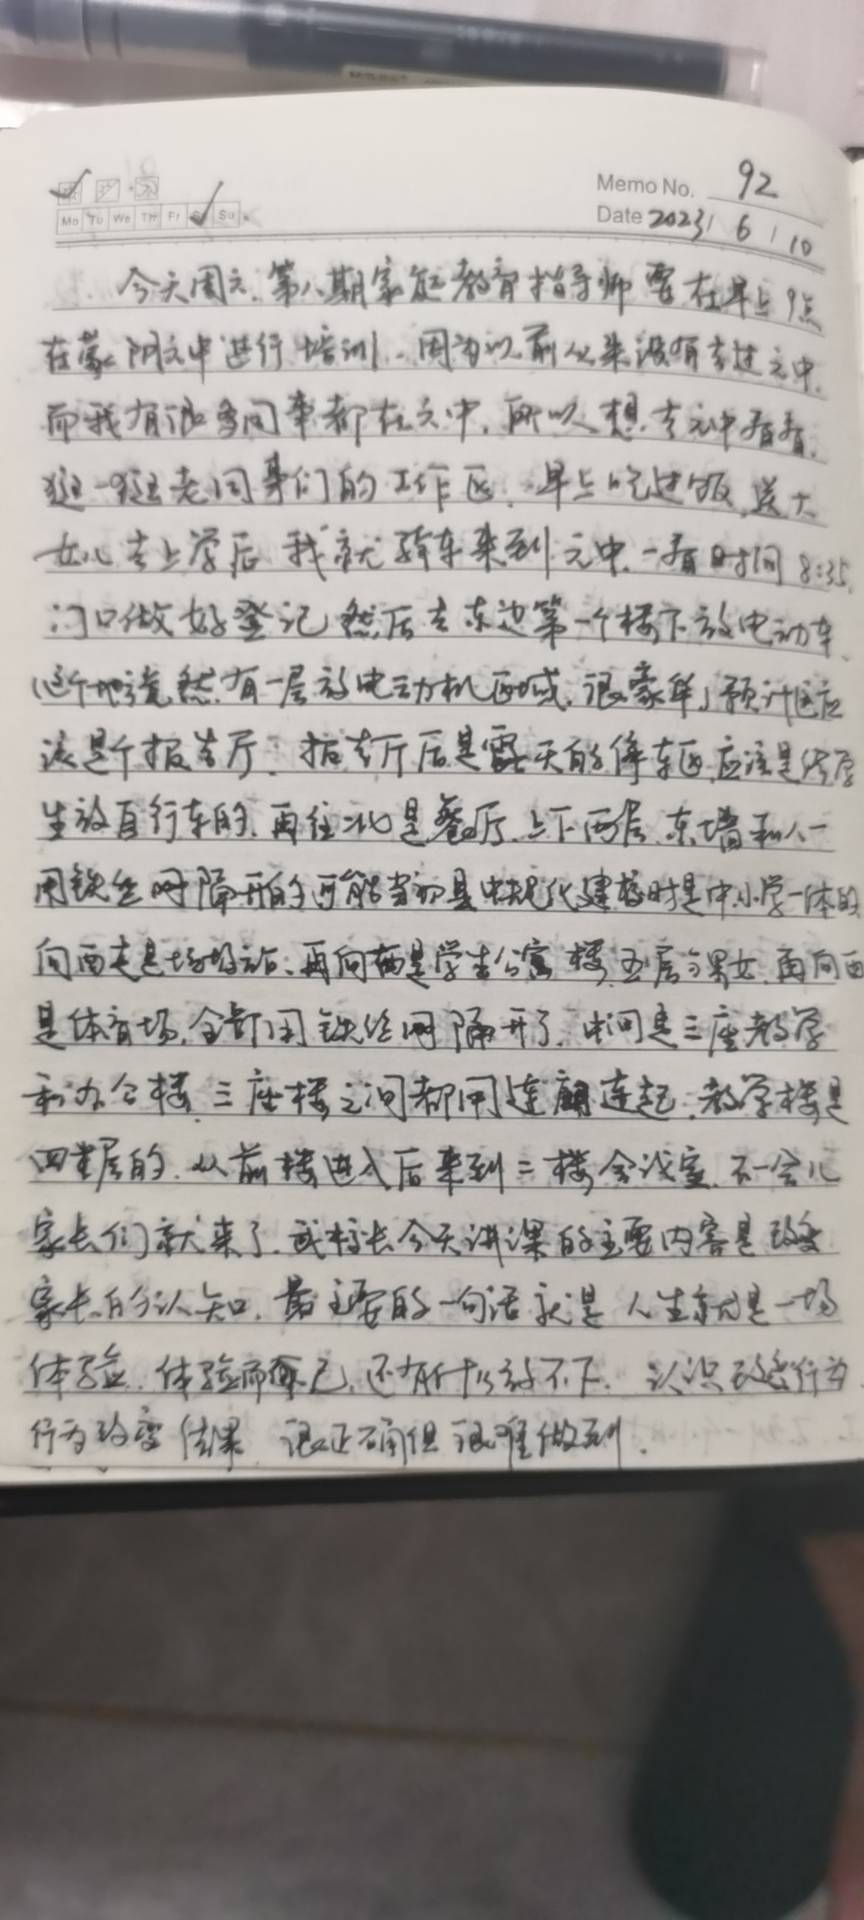 Memo No. 92
Mo Tu We Th Fr Su
Date 2023 / 6 / 10
今天周六,第八期家庭教育指导师要在早上9点
在蒙阴六中进行培训,因为以前从来没有去过六中,
而我有很多同事都在六中,所以想去六中看看,
逛一逛老同事们的工作区,早上吃过饭,送大
女儿去上学后 我就骑车来到六中,一看时间8:35,
门口做好登记 然后去东边第一个楼下放电动车,
(这个地竟然有一层放电动机区域,很豪华)预计这应
该是个报告厅,报告厅后是露天的停车区,应该是供学
生放自行车的,再往北是餐厅,上下两层,东墙和
用铁丝网隔开的 可能当初是 规化建校时是中小学一体的
向西走是 再向西是学生公寓楼,五层 男女,再向西
是体育场,全部用铁丝网隔开了,中间是三座教学
和办公楼,三座楼之间都用连廊连起,教学楼是
四层的,从前楼进入后来到二楼会议室,不一会儿
家长们就来了,武校长今天讲课的主要内容是改变
家长的认知,最主要的一句话就是 人生就是一场
体验,体验而已,还有什么放不下, 认识改变行为,
行为改变结果 很正确但很难做到.